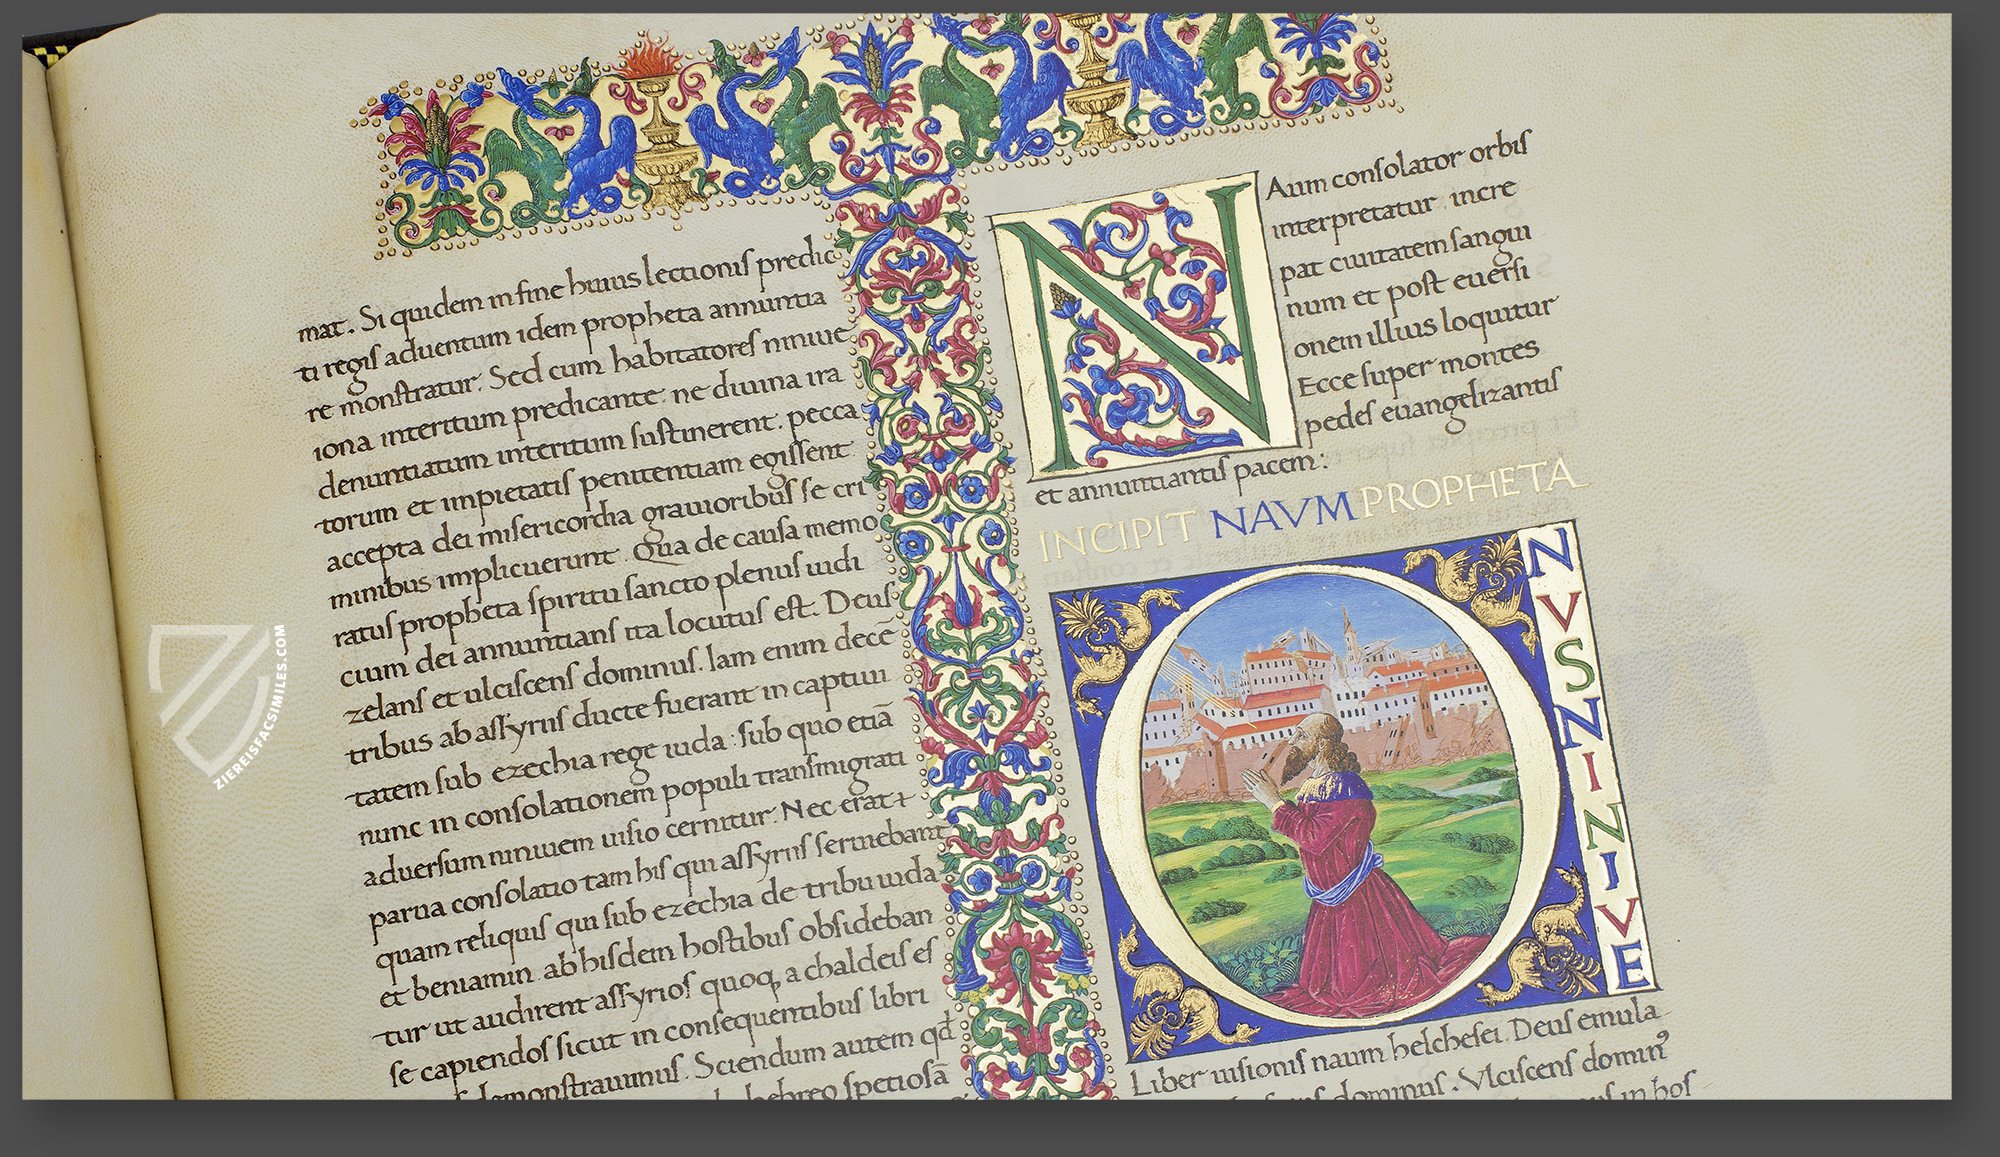 mat. Si quidem in fine huius lectionis predic
ti regis aduentum idem propheta annuntia
re monstratur. Sed cum habitatores niniue
iona interitum predicante ne diuina ira
denuntiatum interitum sustinerent. pecca
torum et impietatis penitentiam egissent
accepta dei misericordia grauioribus se cri
minibus implicuerunt. Qua de causa memo
ratus propheta spiritu sancto plenus iudi
cium dei annuntians ita locutus est. Deus
zelans et ulciscens dominus. Iam enim decē
tribus ab assyriis ducte fuerant in captiui
tatem sub ezechia rege iuda: sub quo etiā
nunc in consolationem populi transmigrati
aduersum niniuem uisio cernitur. Nec erat
parua consolatio tam his qui assyriis seruiebant
quam reliquis qui sub ezechia de tribu iuda
et beniamin ab hisdem hostibus obsideban
tur ut audirent assyrios quoq a chaldeis es
se capiendos sicut in consequentibus libri
demonstrauimus. Sciendum autem qd
hebreo spetiosā
NAum consolator orbis
interpretatur. incre
pat ciuitatem sangui
num et post euersi
onem illius loquitur
Ecce super montes
pedes euangelizantis
et annuntiantis pacem:
INCIPIT NAVM PROPHETA
O
NVS NINIVE
Liber uisionis naum helchesei. Deus emula
dominus. Vlciscens domin⁹
in hos
ZIEREISFACSIMILES.COM